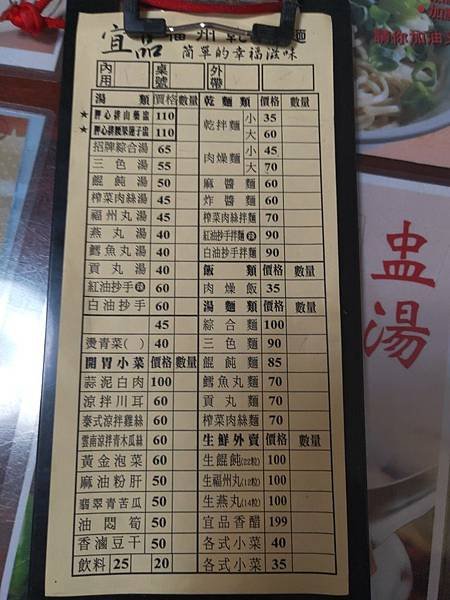 宜品福州乾拌麵
簡單的幸福滋味
內用 桌號 外帶
湯類 價格 數量
★ 排山藥盅 110
★ 蓮子盅 110
招牌綜合湯 65
三色湯 55
餛飩湯 50
榨菜肉絲湯 45
福州丸湯 45
燕丸湯 40
鱈魚丸湯 40
貢丸湯 40
紅油抄手 辣 60
白油抄手 60
45
燙青菜( ) 40
開胃小菜 價格 數量
蒜泥白肉 100
涼拌川耳 60
泰式涼拌雞絲 60
雲南涼拌青木瓜絲 60
黃金泡菜 60
麻油粉肝 50
翡翠青苦瓜 50
油悶筍 50
香滷豆干 50
飲料 25 20
乾麵類 價格 數量
乾拌麵 小 35
大 60
肉燥麵 小 45
大 70
麻醬麵 60
炸醬麵 60
榨菜肉絲拌麵 70
紅油抄手拌麵 辣 90
白油抄手拌麵 90
飯類 價格 數量
肉燥飯 35
湯麵類 價格 數量
綜合麵 100
三色麵 90
餛飩麵 85
鱈魚丸麵 70
貢丸麵 70
榨菜肉絲麵 70
生鮮外賣 價格 數量
生餛飩(22粒) 100
生福州丸(12粒) 100
生燕丸(14粒) 100
宜品香醋 199
各式小菜 40
各式小菜 35
盅湯
請你加油